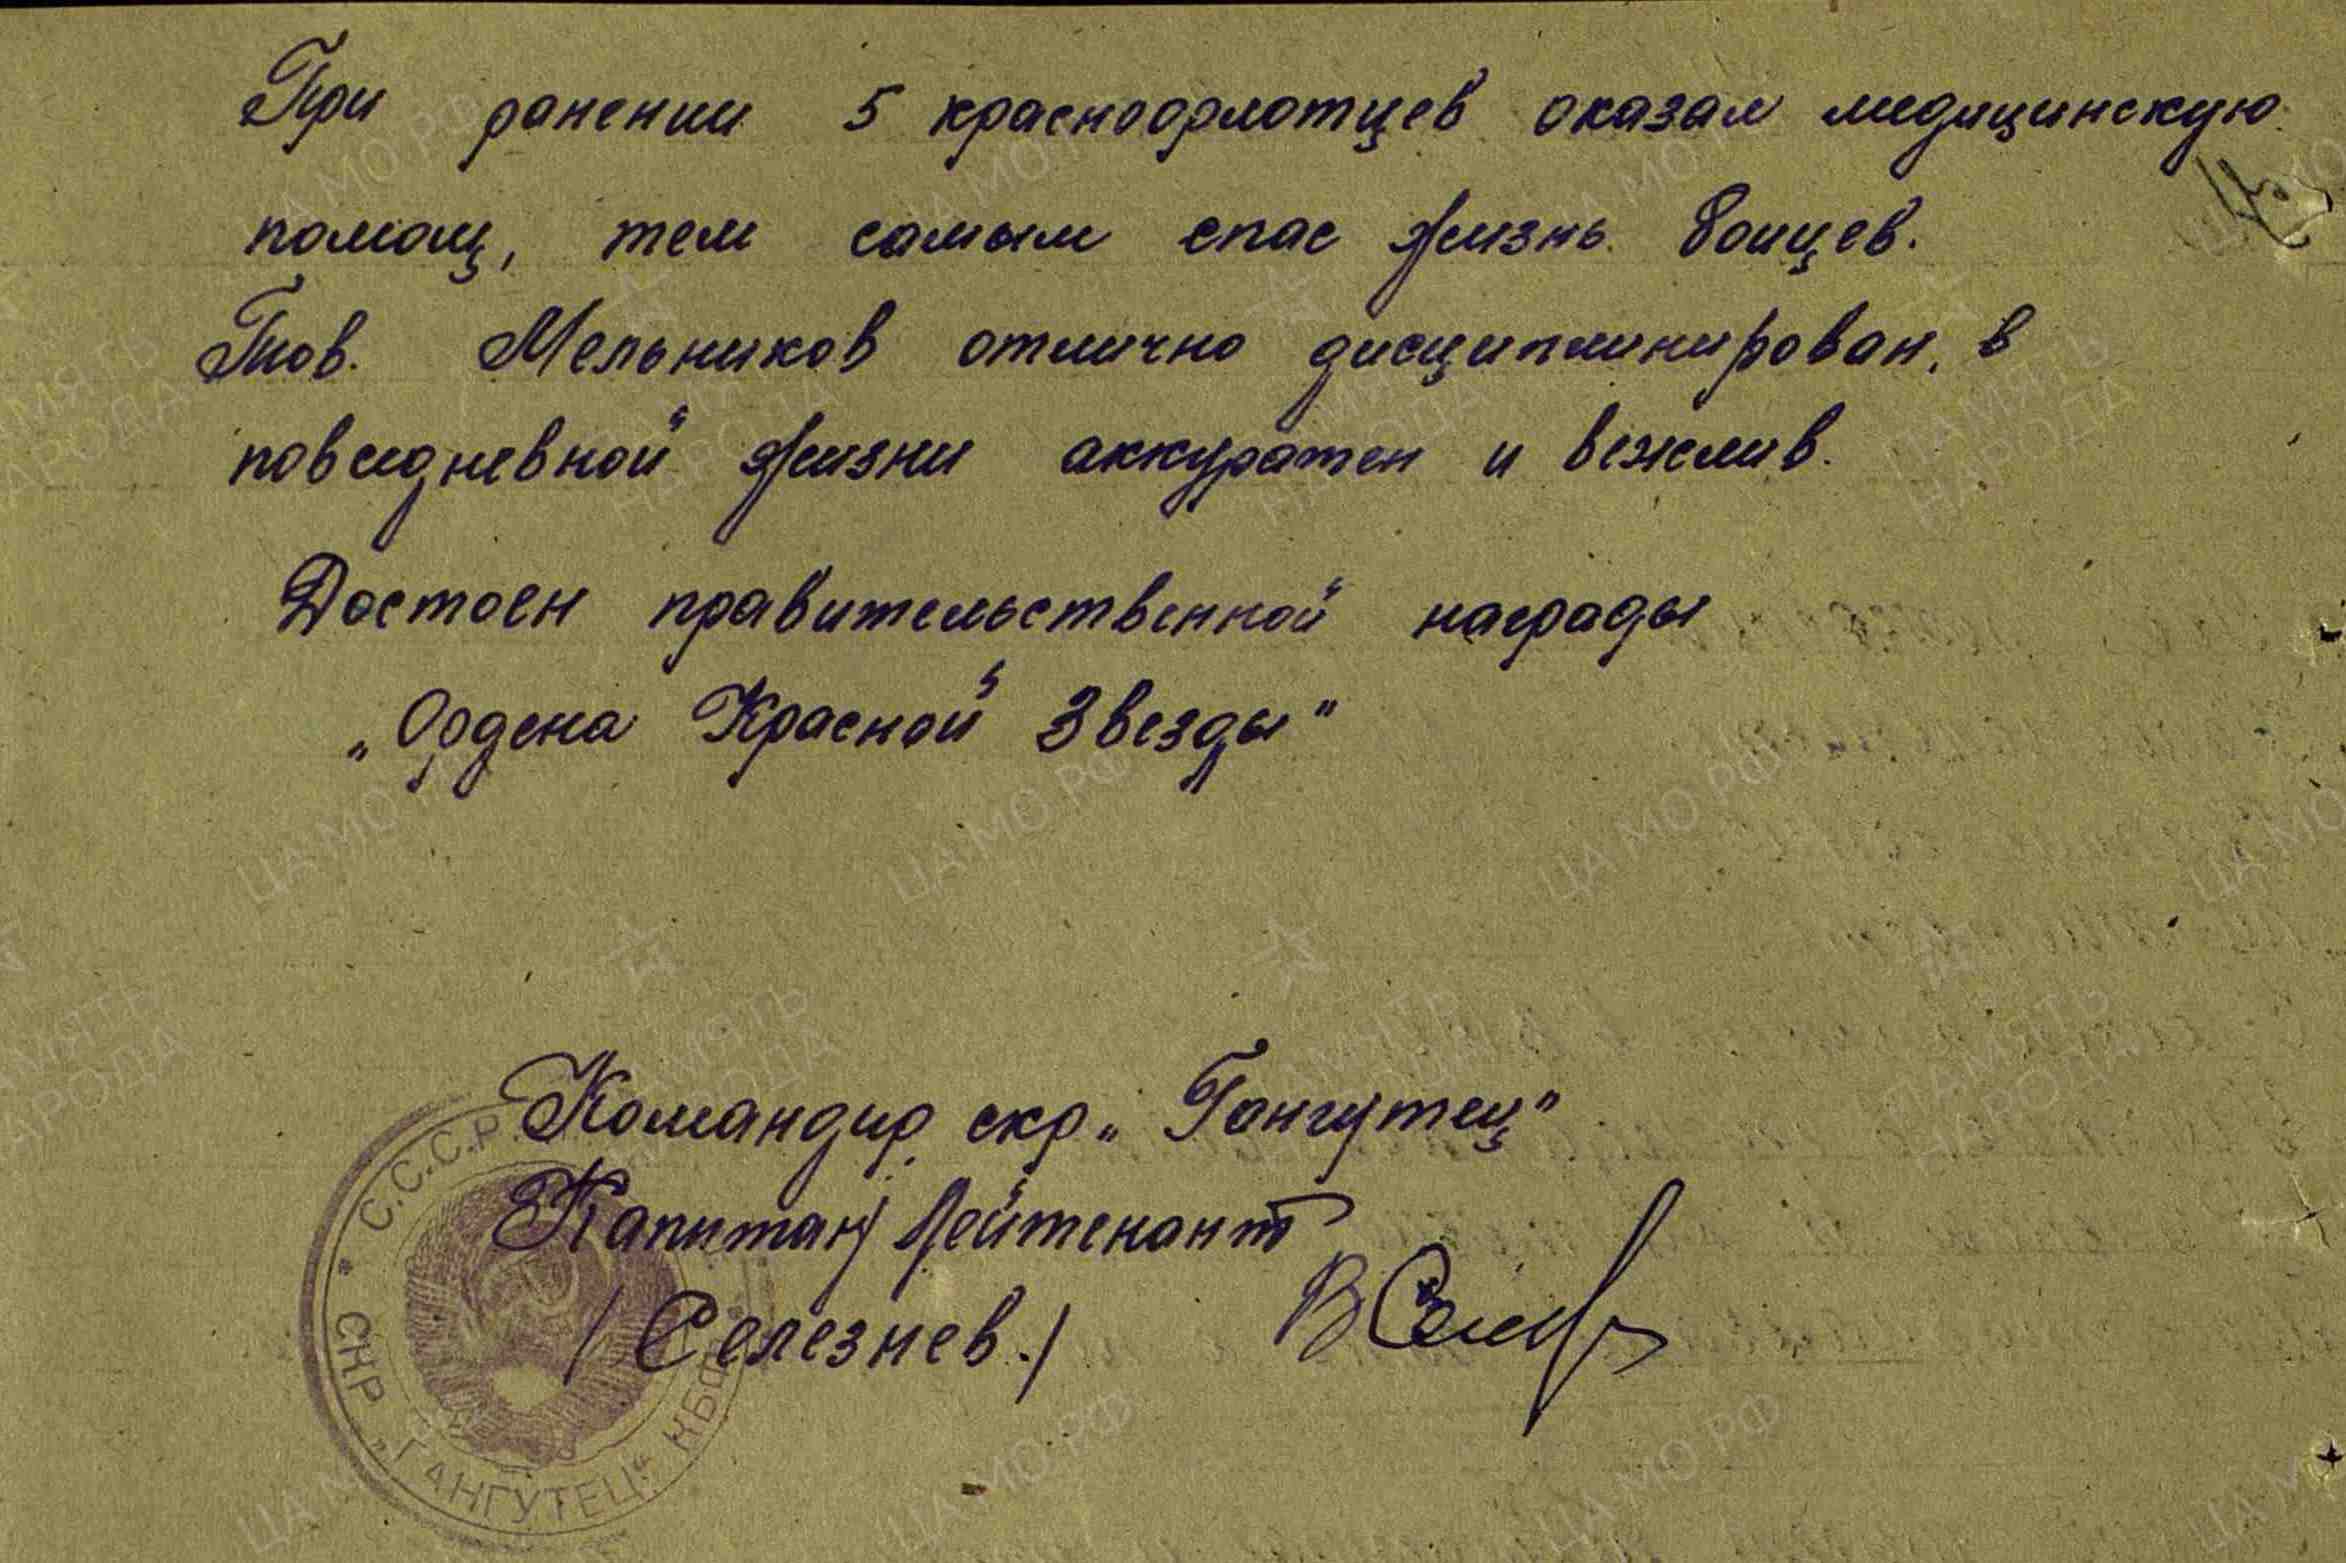 При ранении 5 краснофлотцев оказал медицинскую
помощ, тем самым спас жизнь боицев.
Тов. Мельников отлично дисциплинирован, в
повседневной жизни аккуратен и вежлив.
Достоен правительственной награды
„Ордена Красной Звезды"
Командир скр „Гангутец"
Капитан Лейтенант
/Селезнев./
С.С.С.Р.
СКР „ГАНГУТЕЦ" КБФ
ЦА МО РФ
ПАМЯТЬ
НАРОДА